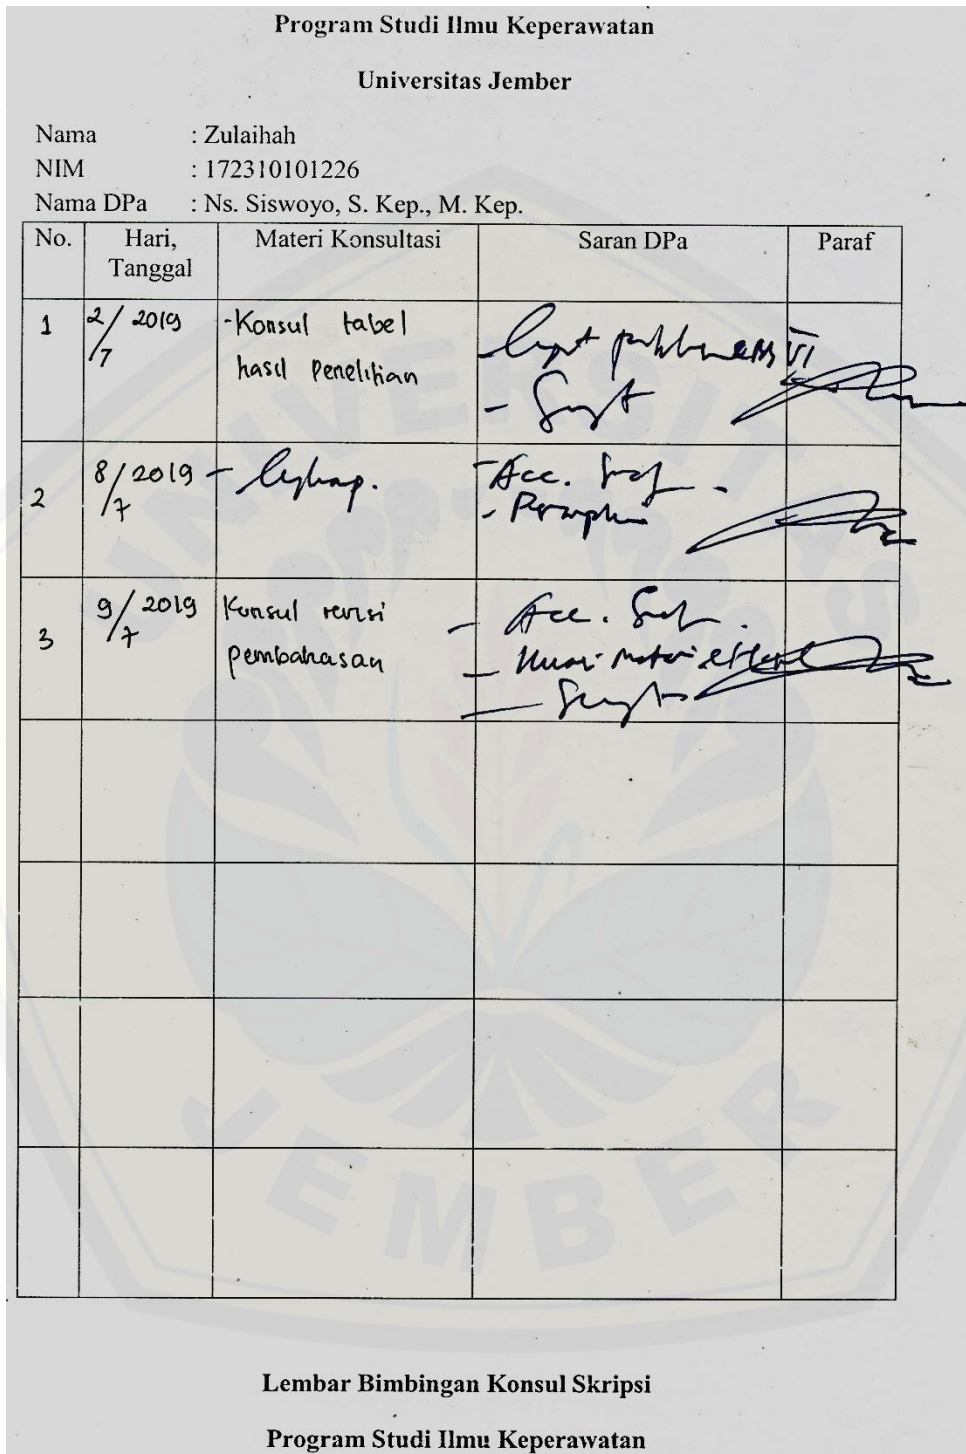 Program Studi Ilmu Keperawatan
Universitas Jember
Nama : Zulaihah
NIM : 172310101226
Nama DPa : Ns. Siswoyo, S. Kep., M. Kep.
No. Hari, Tanggal Materi Konsultasi Saran DPa Paraf
1 2/7 2019 -Konsul tabel
hasil penelitian
VI
2 8/7 2019 -
- Acc.
-
3 9/7 2019 Konsul revisi
pembahasan
- Acc.
-
UNIVERSITAS
JEMBER
Lembar Bimbingan Konsul Skripsi
Program Studi Ilmu Keperawatan